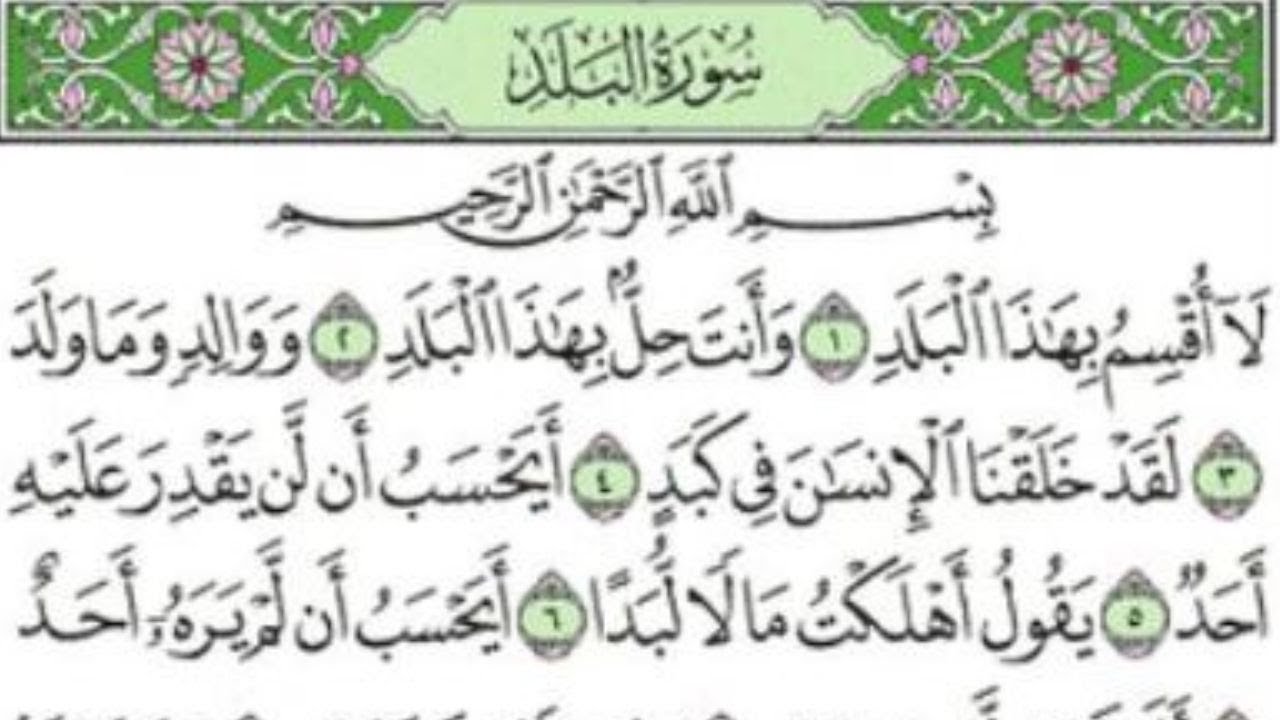 سُورَةُ البَلَدِ
بِسْمِ ٱللَّهِ ٱلرَّحْمَٰنِ ٱلرَّحِيمِ
لَآ أُقْسِمُ بِهَٰذَا ٱلْبَلَدِ ١ وَأَنتَ حِلٌّۢ بِهَٰذَا ٱلْبَلَدِ ٢ وَوَالِدٍ وَمَا وَلَدَ
٣ لَقَدْ خَلَقْنَا ٱلْإِنسَٰنَ فِى كَبَدٍ ٤ أَيَحْسَبُ أَن لَّن يَقْدِرَ عَلَيْهِ
أَحَدٌ ٥ يَقُولُ أَهْلَكْتُ مَالًا لُّبَدًا ٦ أَيَحْسَبُ أَن لَّمْ يَرَهُۥٓ أَحَدٌ